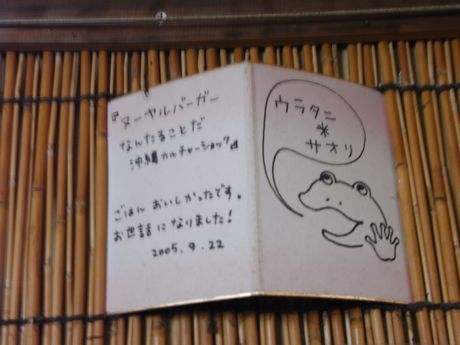 『ヌーヤルバーガー
なんたることだ
沖縄カルチャーショック』
ごはんおいしかったです。
お世話になりました!
2005.9.22
ウラタニ
*
サオリ